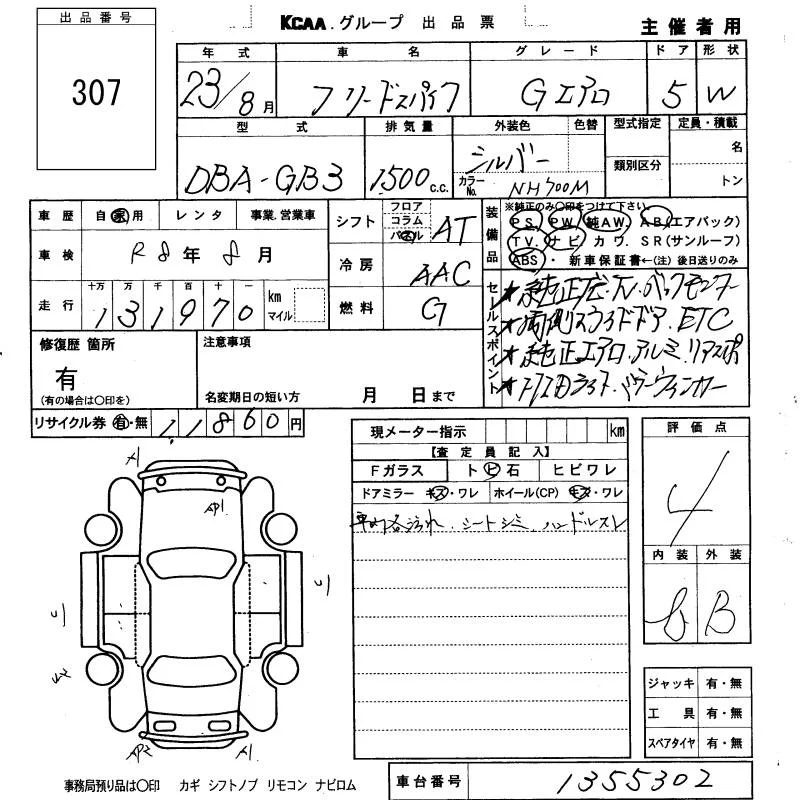 出品番号
307
KCAA.グループ 出品票
主催者用
年式 車名 グレード ドア 形状
23/8月 フリードスパイク Gエアロ 5 W
型式 排気量 外装色 色替 型式指定 定員・積載
DBA-GB3 1500c.c. シルバー
カラーNo. NH700M
類別区分
名
トン
車歴 自家用 レンタ 事業.営業車
車検 R8年8月
走行 十万 万 千 百 十 一 km マイル
131970
シフト フロア コラム パネル AT
冷房 AAC
燃料 G
装備品
※純正のみ○印をつけて下さい
PS. PW. 純AW. AB.(エアバック)
TV. ナビ カワ. SR(サンルーフ)
ABS ・ 新車保証書←(注)後日送りのみ
セールスポイント
★純正ナビ.TV.バックモニター
★両側スライドドア.ETC
★純正エアロ.アルミ.リアスポ
修復歴 箇所
有
(有の場合は○印を)
注意事項
名変期日の短い方 月 日まで
リサイクル券 有・無 11860円
現メーター指示 km
【査定員記入】
Fガラス ト ビ 石 ヒビワレ
ドアミラー キズ・ワレ ホイール(CP) キズ・ワレ
車内各汚れ.シートシミ.ハンドルスレ
評価点
4
内装 外装
B
A1
AP1
AP2 A1
ジャッキ 有・無
工具 有・無
スペアタイヤ 有・無
事務局預り品は○印 カギ シフトノブ リモコン ナビロム
車台番号 1355302